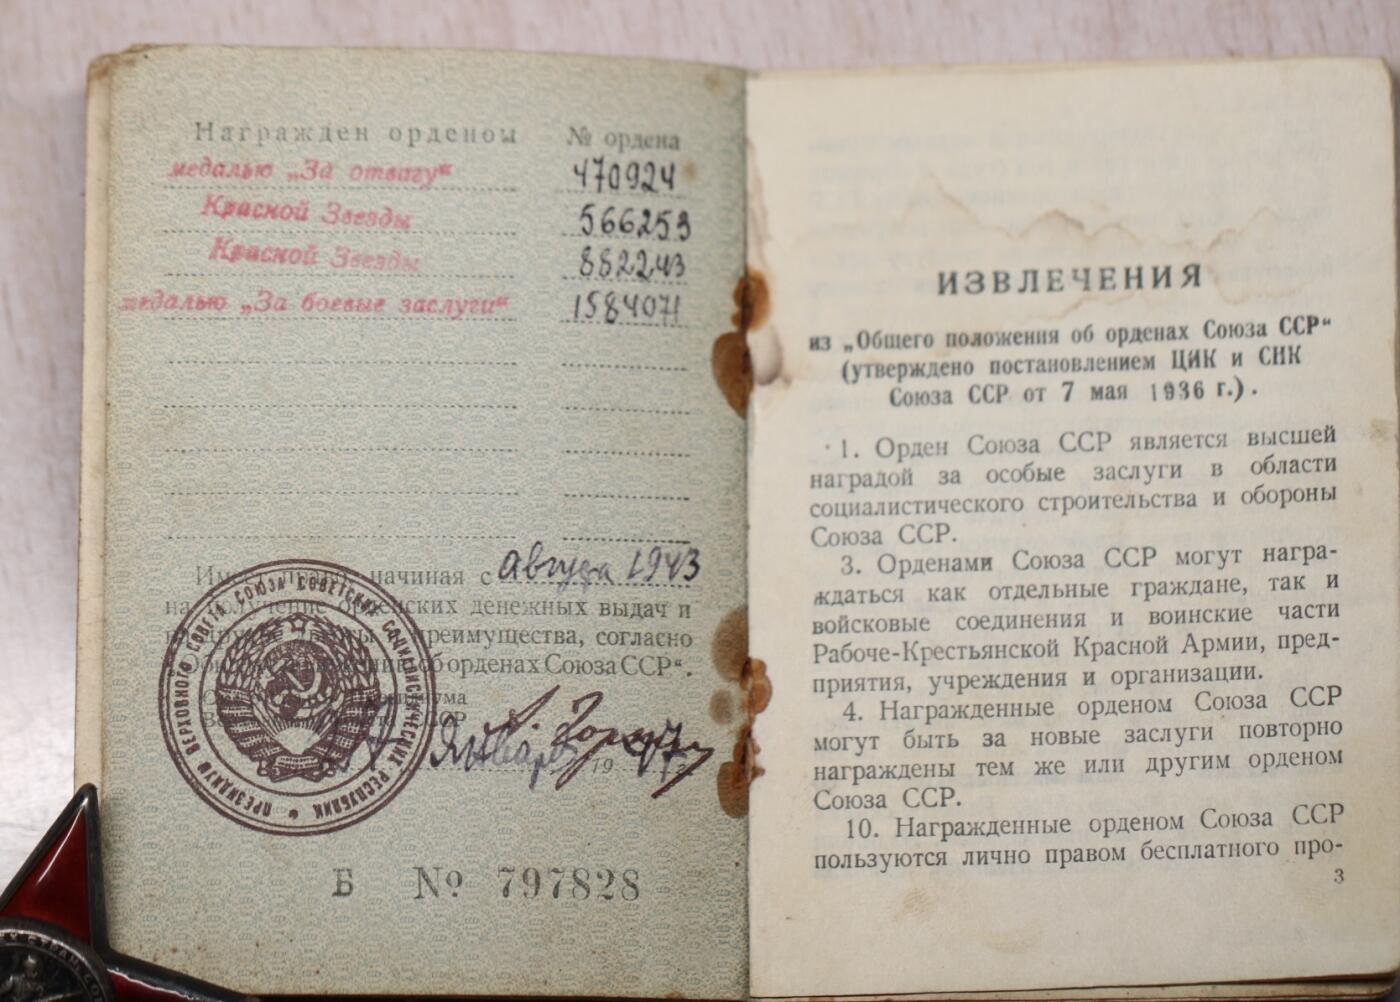 Награжден орденом № ордена
медалью „За отвагу“ 470924
Красной Звезды 566253
Красной Звезды 882243
медалью „За боевые заслуги“ 1584071
начиная с августа 1943
на получение орденских денежных выдач и
преимущества, согласно
об орденах Союза ССР“.
ПРЕЗИДИУМ ВЕРХОВНОГО СОВЕТА СОЮЗА СОВЕТСКИХ СОЦИАЛИСТИЧЕСКИХ РЕСПУБЛИК
января 19 47
Б № 797828
ИЗВЛЕЧЕНИЯ
из „Общего положения об орденах Союза ССР“
(утверждено постановлением ЦИК и СНК
Союза ССР от 7 мая 1936 г.).
1. Орден Союза ССР является высшей
наградой за особые заслуги в области
социалистического строительства и обороны
Союза ССР.
3. Орденами Союза ССР могут награ-
ждаться как отдельные граждане, так и
войсковые соединения и воинские части
Рабоче-Крестьянской Красной Армии, пред-
приятия, учреждения и организации.
4. Награжденные орденом Союза ССР
могут быть за новые заслуги повторно
награждены тем же или другим орденом
Союза ССР.
10. Награжденные орденом Союза ССР
пользуются лично правом бесплатного про-
3